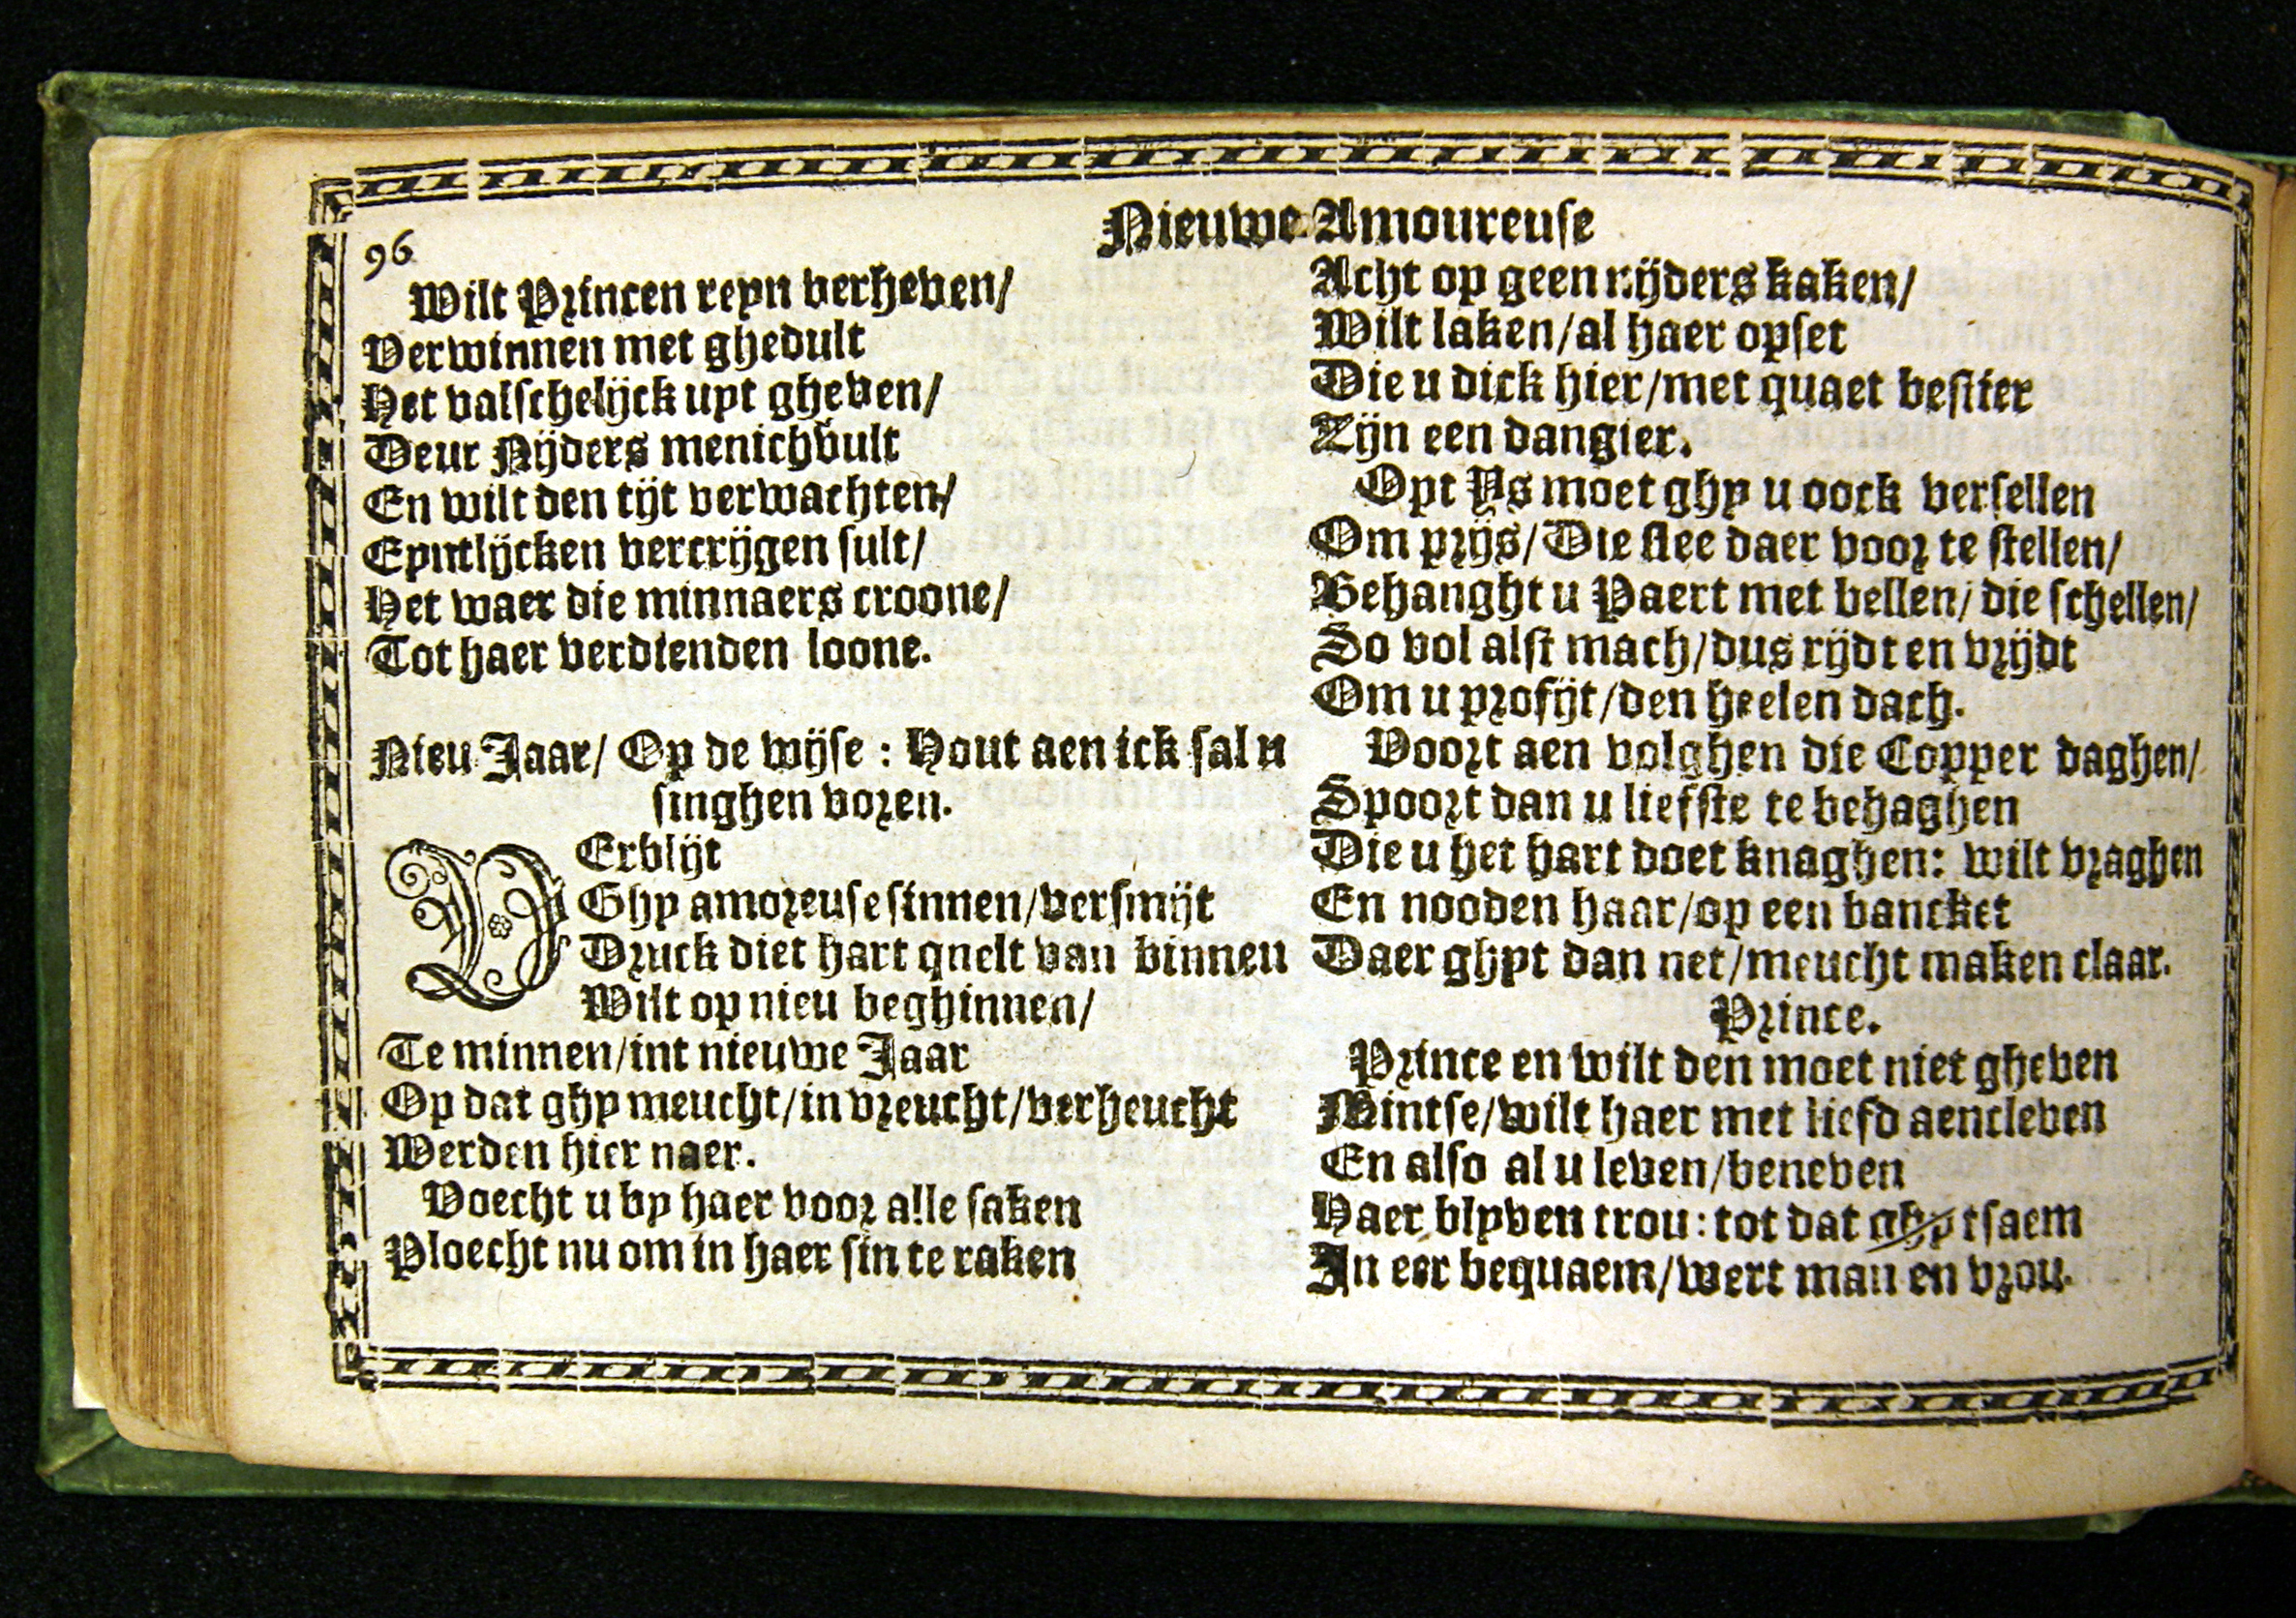 96
Nieuwe Amoureuse
Wilt Princen reyn verheven/
Verwinnen met ghedult
Het valschelijck uyt gheven/
Deur Nijders menichvult
En wilt den tijt verwachten/
Eyntlijcken vercrijgen sult/
Het waer die minnaers croone/
Tot haer verdienden loone.
Nieu Jaar/ Op de wijse : Hout aen ick sal u
singhen voren.
VErblijt
Ghy amoreuse sinnen/versmijt
Druck diet hart quelt van binnen
Wilt op nieu beghinnen/
Te minnen/int nieuwe Jaar
Op dat ghy meucht/in vreucht/verheucht
Werden hier naer.
Voecht u by haer voor alle saken
Ploecht nu om in haer sin te raken
Acht op geen nijders kaken/
Wilt laken/al haer opset
Die u dick hier/met quaet bestier
Zijn een dangier.
Opt Ys moet ghy u oock versellen
Om prijs/Die slee daer voor te stellen/
Behanght u Paert met bellen/die schellen/
So vol alst mach/dus rijdt en vrijdt
Om u profijt/den heelen dach.
Voort aen volghen die Copper daghen/
Spoort dan u liefste te behaghen
Die u het hart doet knaghen: wilt vraghen
En nooden haar/op een bancket
Daer ghyt dan net/meucht maken claar.
Prince.
Prince en wilt den moet niet gheven
Mintse/wilt haer met liefd aencleven
En also al u leven/beneven
Haer blyven trou: tot dat ghy tsaem
In eer bequaem/wert man en vrou.